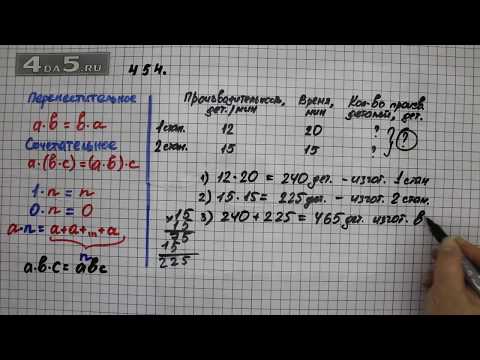 4DA5.RU
454.
Переместительное
a·b = b·a
Сочетательное
a·(b·c)=(a·b)·c
1·n = n
0·n = 0
a·n = a+a+...+a
n
a·b·c = abc
Производительность, дет./мин
Время, мин
Кол-во произв. деталей, дет.
1 стан. 12 20 ?
2 стан. 15 15 ?
?
1) 12·20 = 240 дет. - изгот. 1 стан
2) 15·15 = 225 дет. - изгот. 2 стан.
3) 240+225 = 465 дет. изгот. в
×15
15
75
15
225